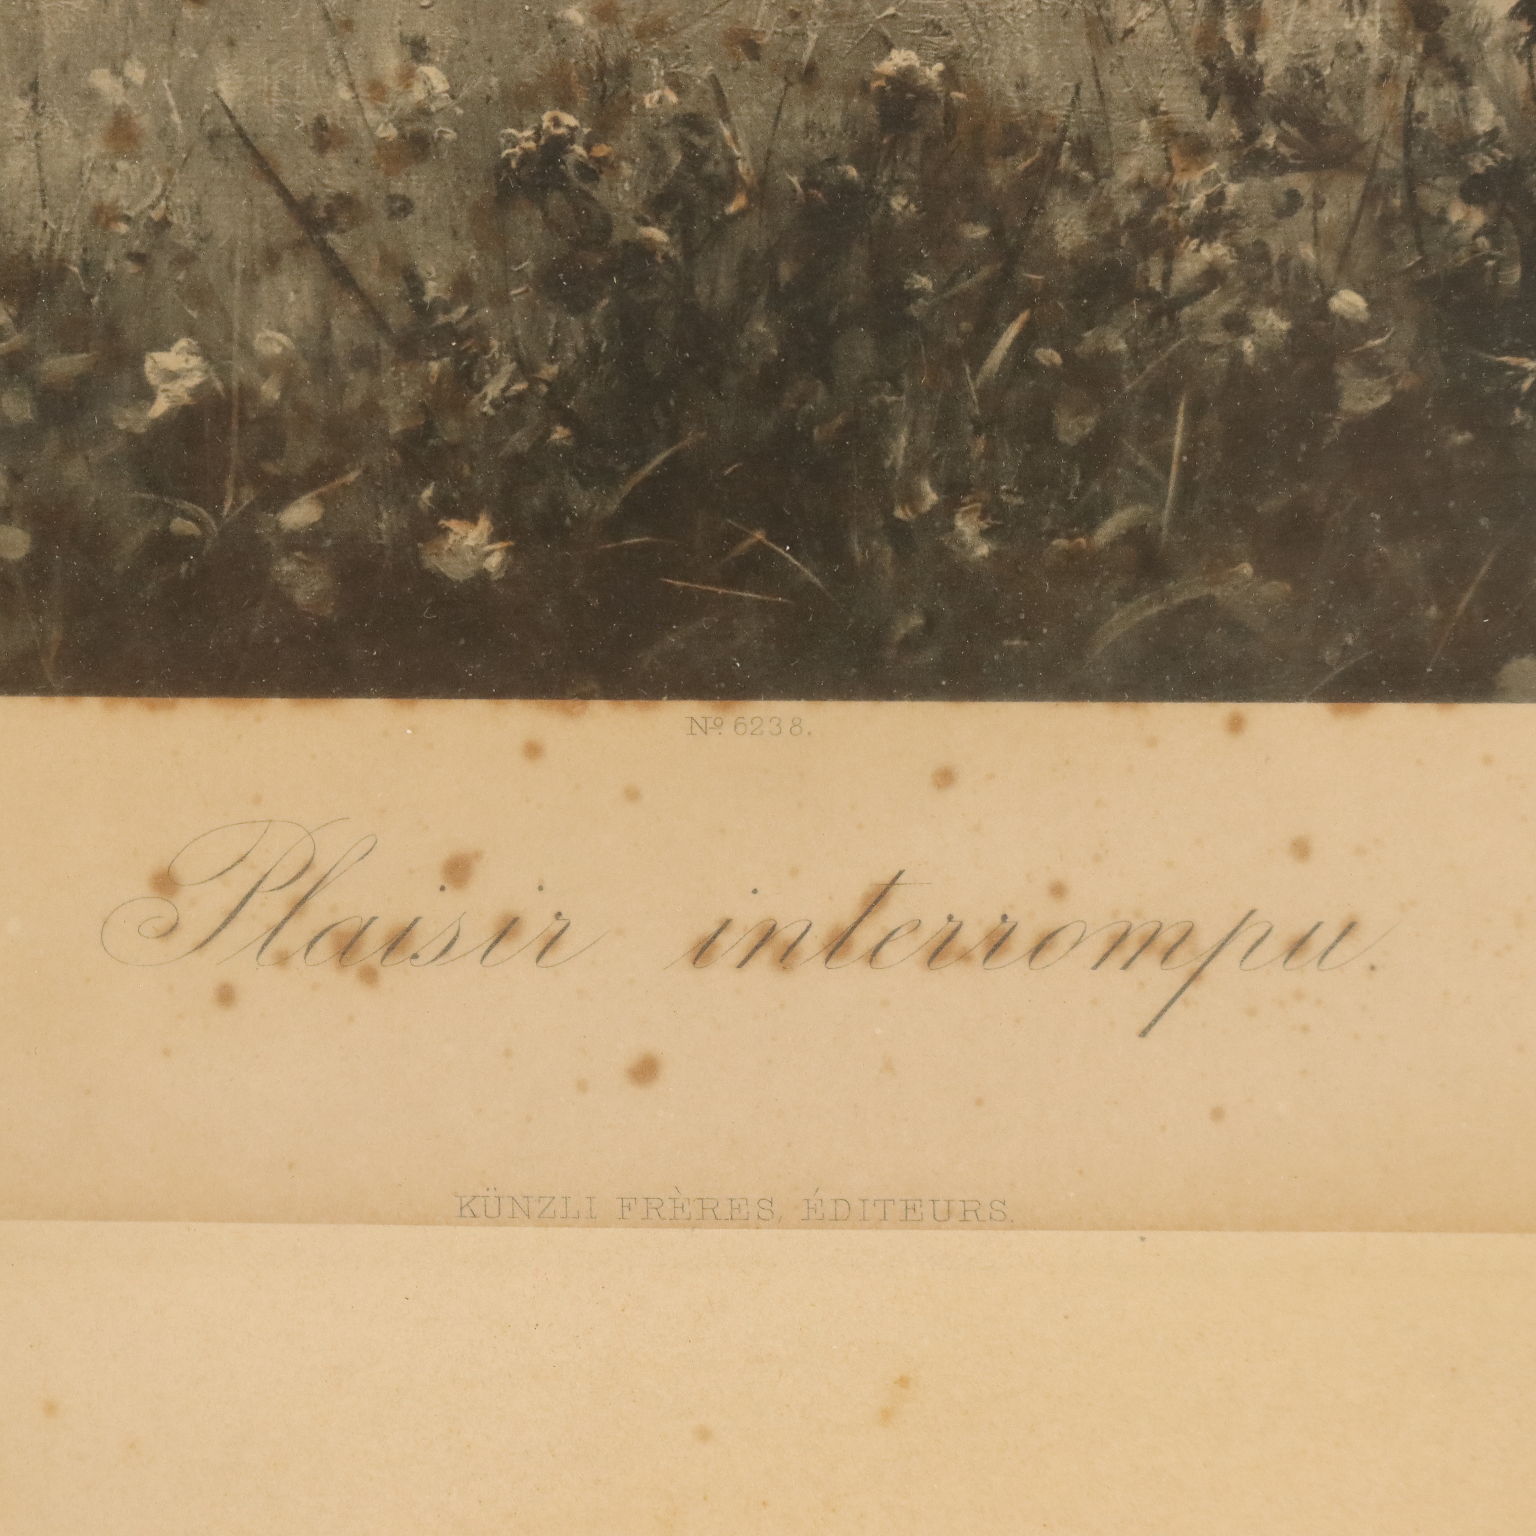 Nº 6238.
Plaisir interrompu.
KÜNZLI FRÈRES, ÉDITEURS.